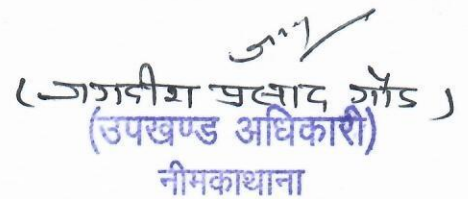 (जगदीश प्रसाद गौड)
(उपखण्ड अधिकारी)
नीमकाथाना